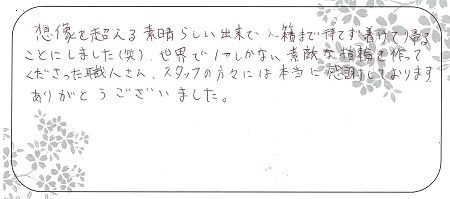 想像を超える素晴らしい出来で、箱まで待てず着けて帰る
ことにしました(笑)。世界で1つしかない素敵な指輪を作って
くださった職人さん、スタッフの方々には本当に感謝しております。
ありがとうございました。